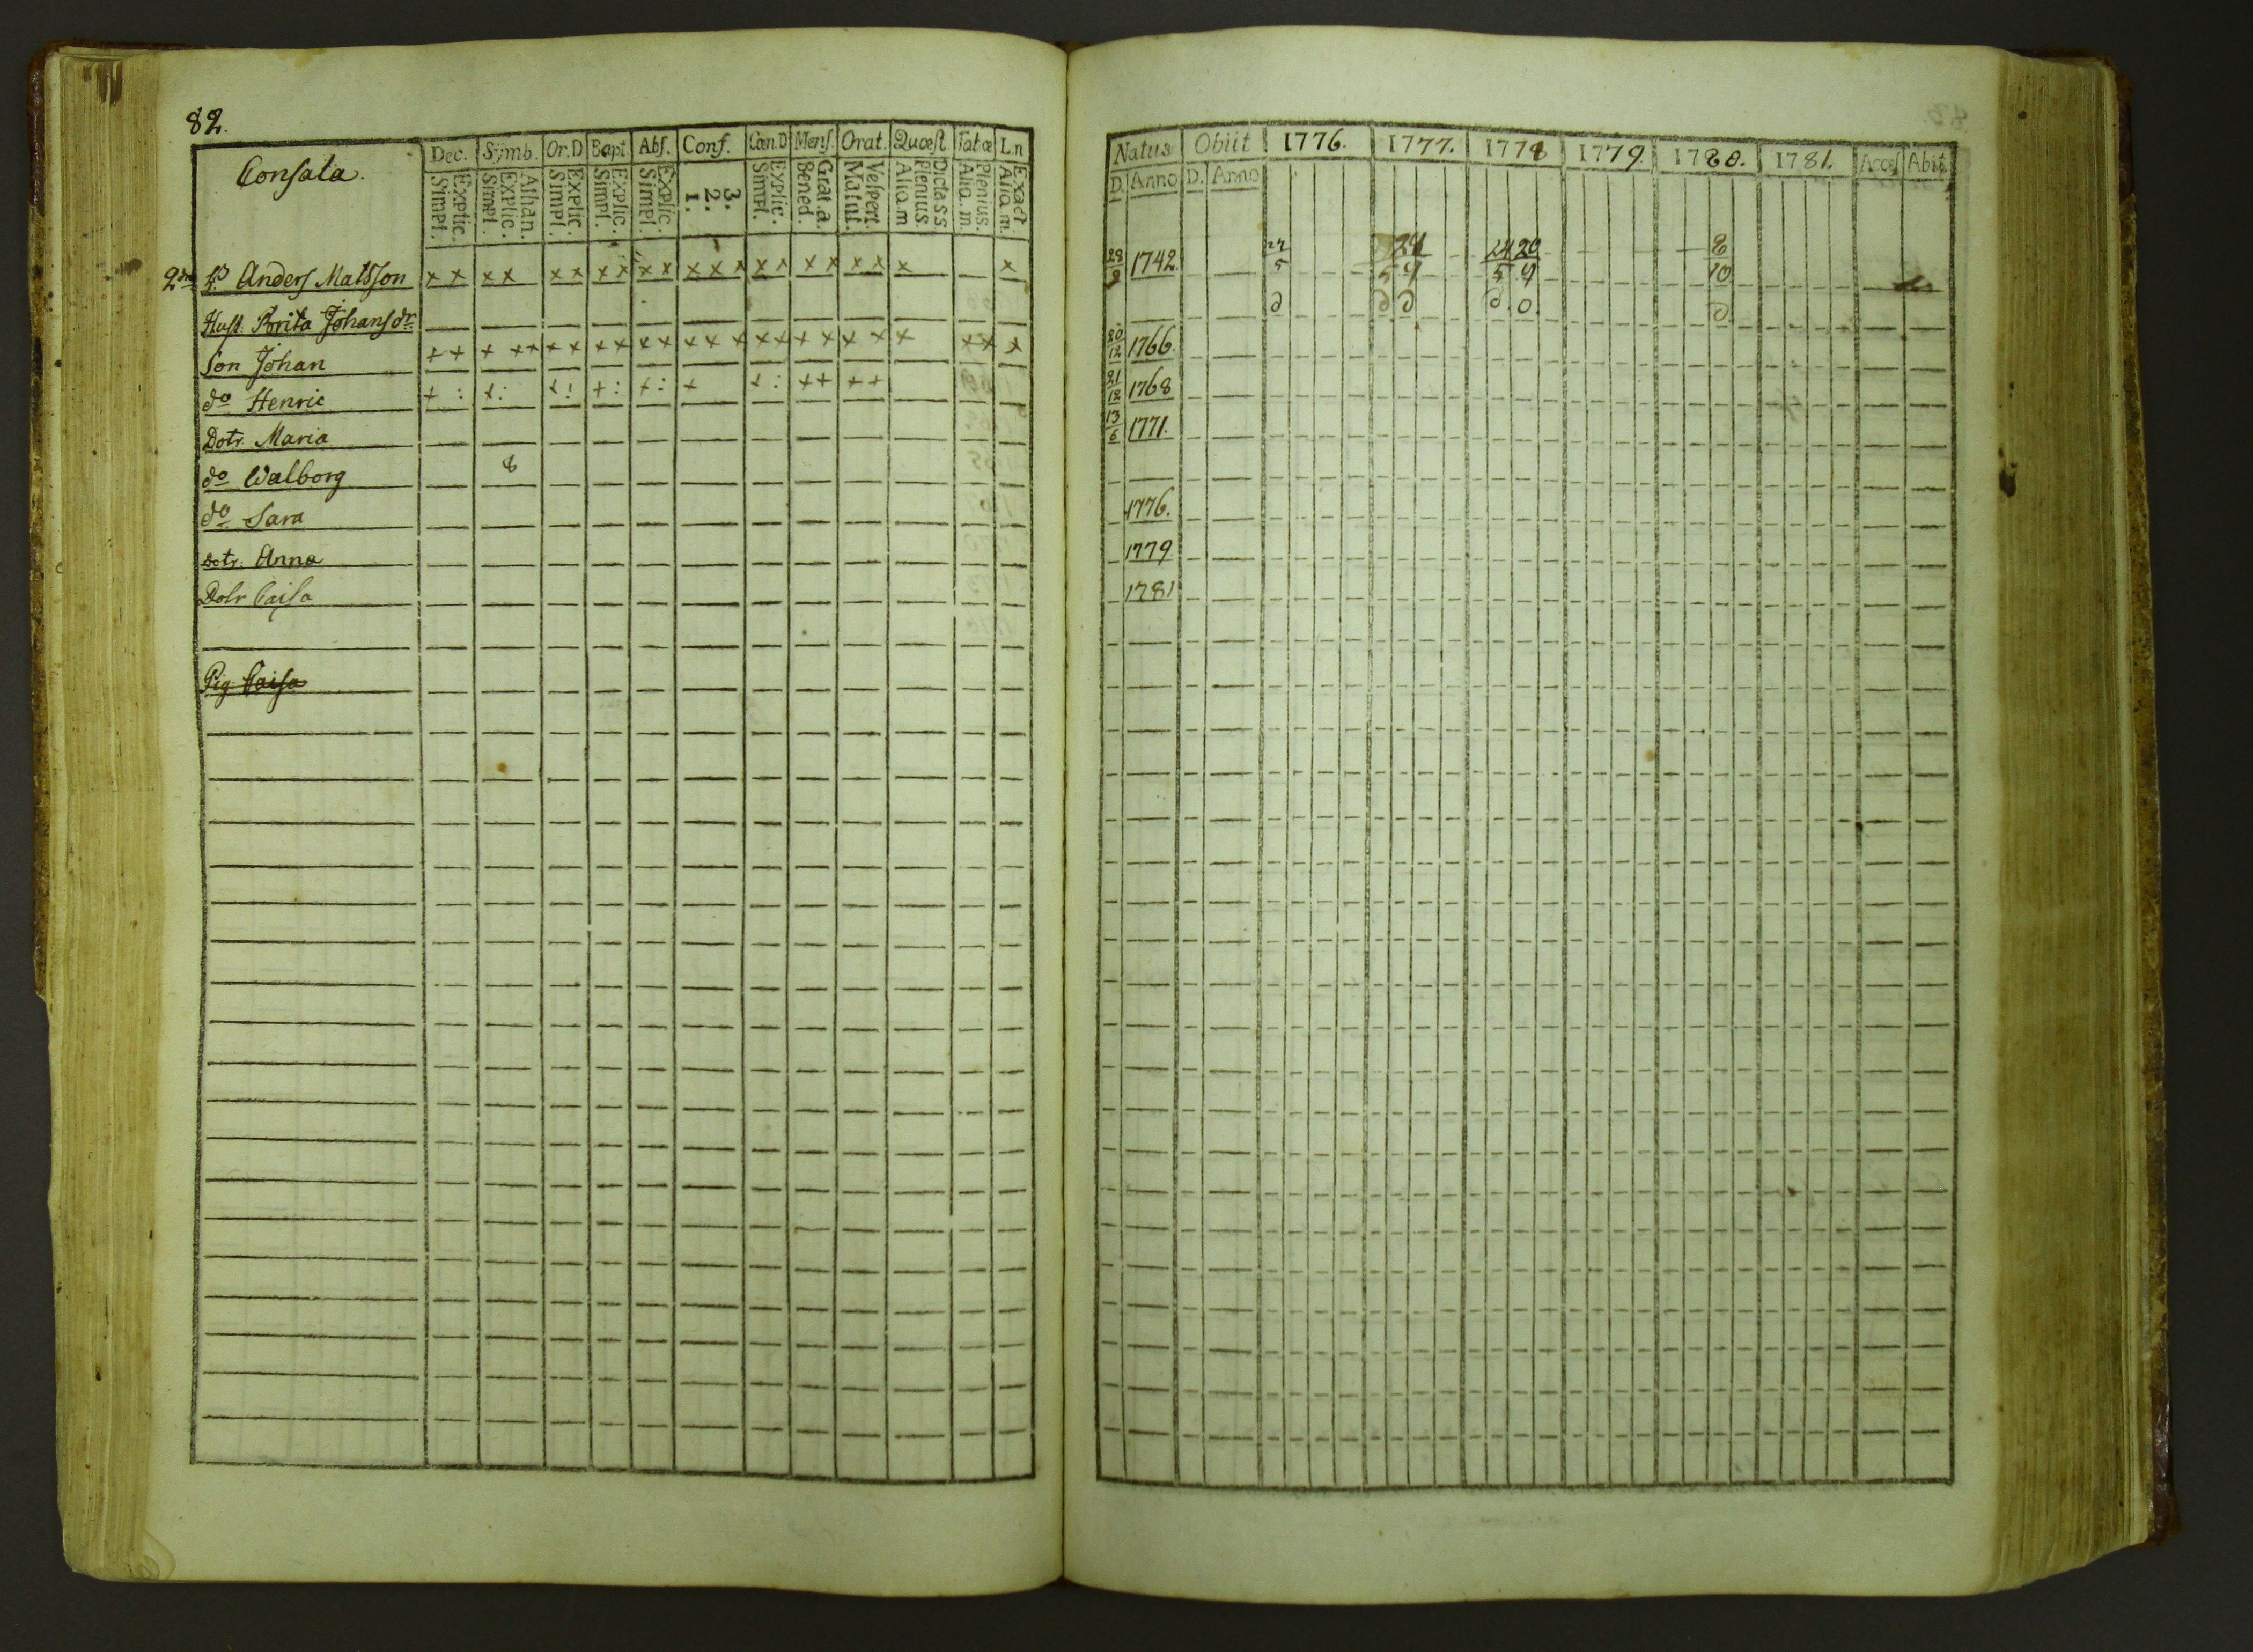 82.
Consala.
Dec. Symb. Or.D Bapt. Abs. Conf. Cœn.D Mens. Orat. Quæst. Tabæ L.n
Simpl. Explic. Simpl. Explic. Athan. Simpl. Explic. Simpl. Explic. Simpl. Explic. 1. 2. 3. Simpl. Explic. Bened. Grat.a. Matut. Vespert. Aliam Plenius. Dictass. Alia.m. Plenius. Alia.m. Exact.
Anders Matsson x x x x x x x x x x x x x x x x x x x x x
Hust. Brita Johansdr
Son Johan x x x x x x x x x x x x x x x x x x x x x x x x
do Henric + : + : + : + : + : + + : + + + +
Dotr. Maria
do Walborg 8
do Sara
Dotr. Anna
Dotr Caisa
Pig. Caisa
Natus Obiit 1776. 1777. 1778 1779. 1780. 1781. Acces Abit.
D. Anno D. Anno
1742. 24 20 8
5 5 9 10
20/12 1766.
21/12 1768
13/6 1771.
1776.
1779
1781